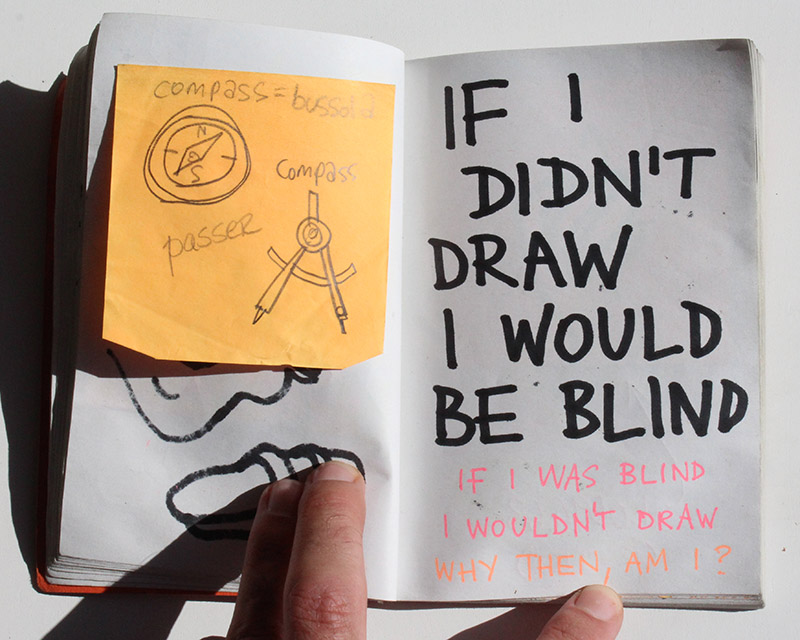 compass = bussola
N
S
compass
passer
IF I
DIDN'T
DRAW
I WOULD
BE BLIND
IF I WAS BLIND
I WOULDN'T DRAW
WHY THEN, AM I?